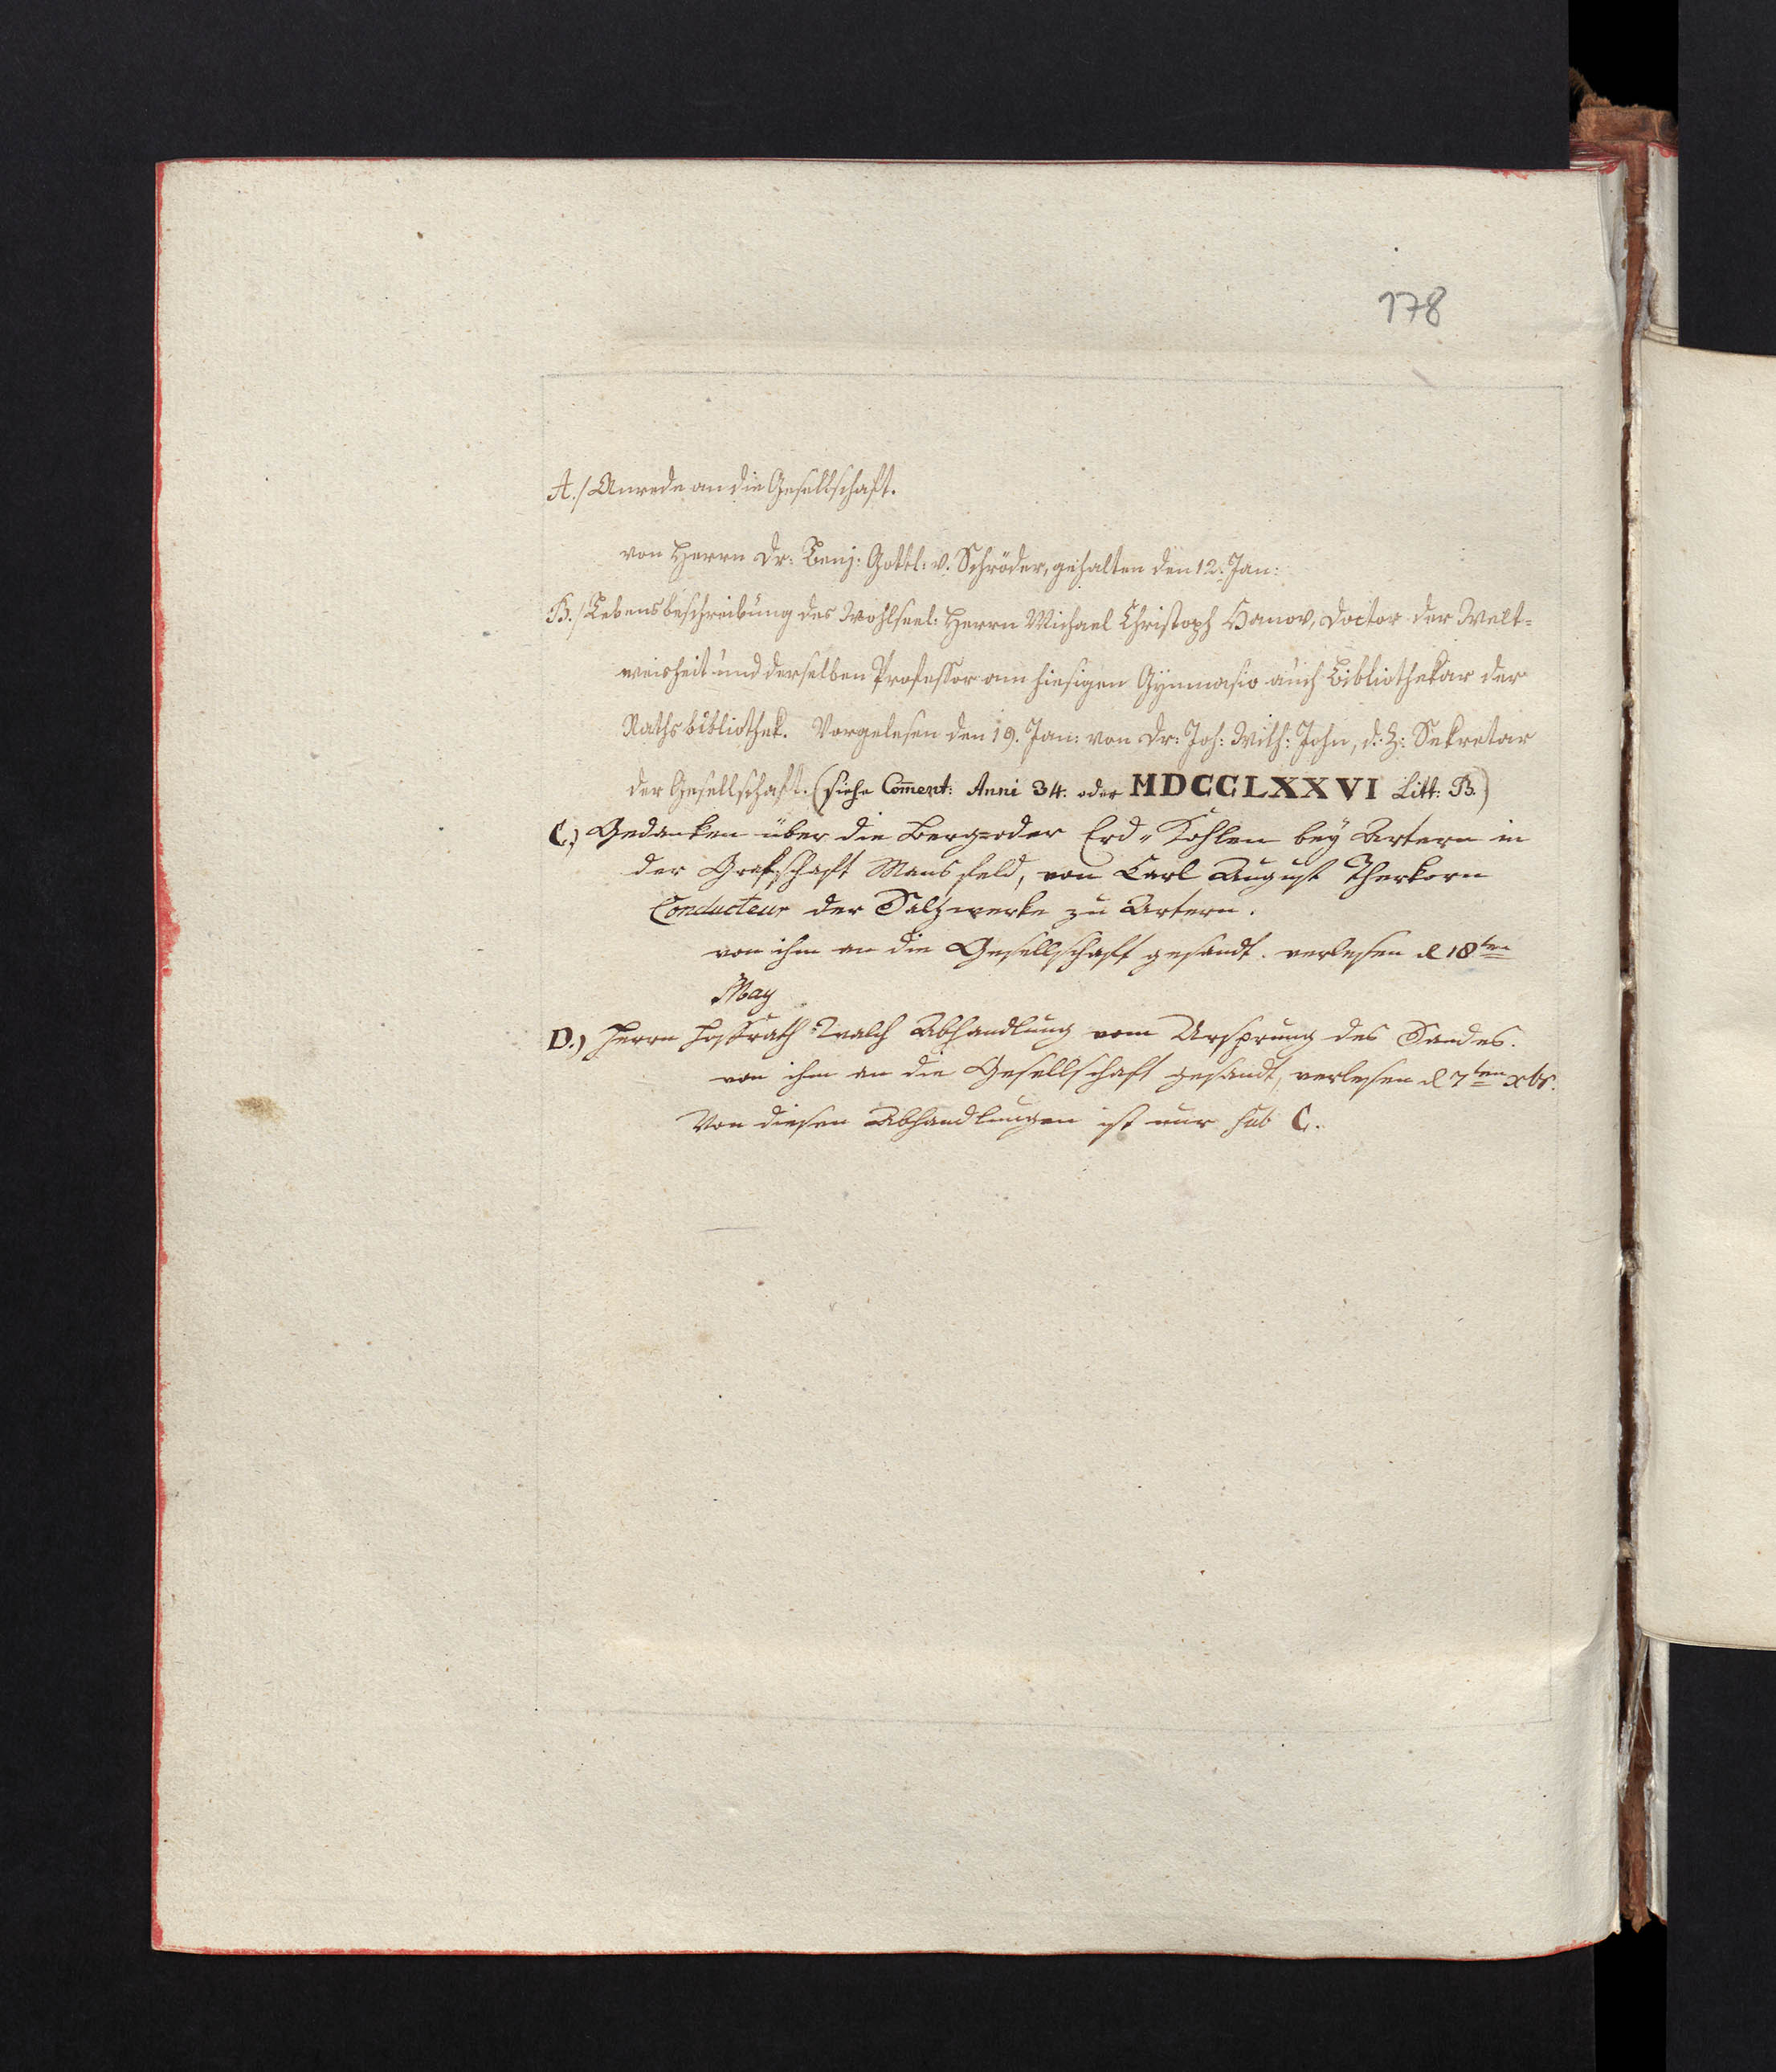 178
A./ Anrede an die Gesellschaft.
von Herrn Dr: Benj: Gottl: v. Schröder, gehalten den 12. Jan:
B./ Lebensbeschreibung des Wohlseel: Herrn Michael Christoph Hanov, Doctor der Welt=
weisheit und derselben Professor am hiesigen Gymnasio auch Bibliothekar der
Rathsbibliothek. Vorgelesen den 19. Jan: von Dr: Joh: Wilh: John, d: Z: Sekretar
der Gesellschaft. (siehe Com̄ent: Anni 34. oder MDCCLXXVI Litt: B.)
C.) Gedanken über die Berg= oder Erd„Kohlen bey Artern in
der Grafschaft Mansfeld, von Carl August Therkorn
Conducteur der Salzwerke zu Artern.
von ihm an die Gesellschaft gesandt. verlesen d 18ten
May
D.) Herrn Hoffrath Walch Abhandlung vom Ursprung des Sandes.
von ihm an die Gesellschaft gesandt, verlesen d 7ten xbr.
Von diesen Abhandlungen ist nur sub C.